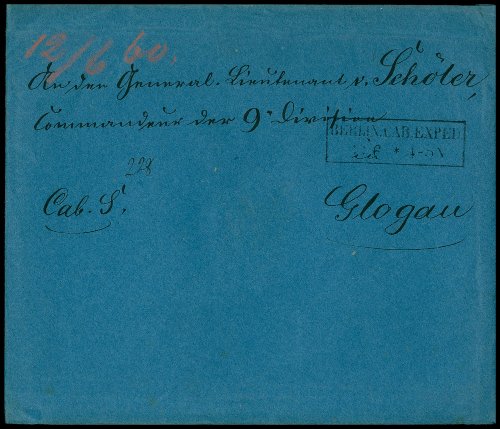 12/6 60.
An den General-Lieutenant v. Schöler,
Commandeur der 9n Division
BERLIN CAB. EXPED
* 4-5N
228
Cab. S.
Glogau